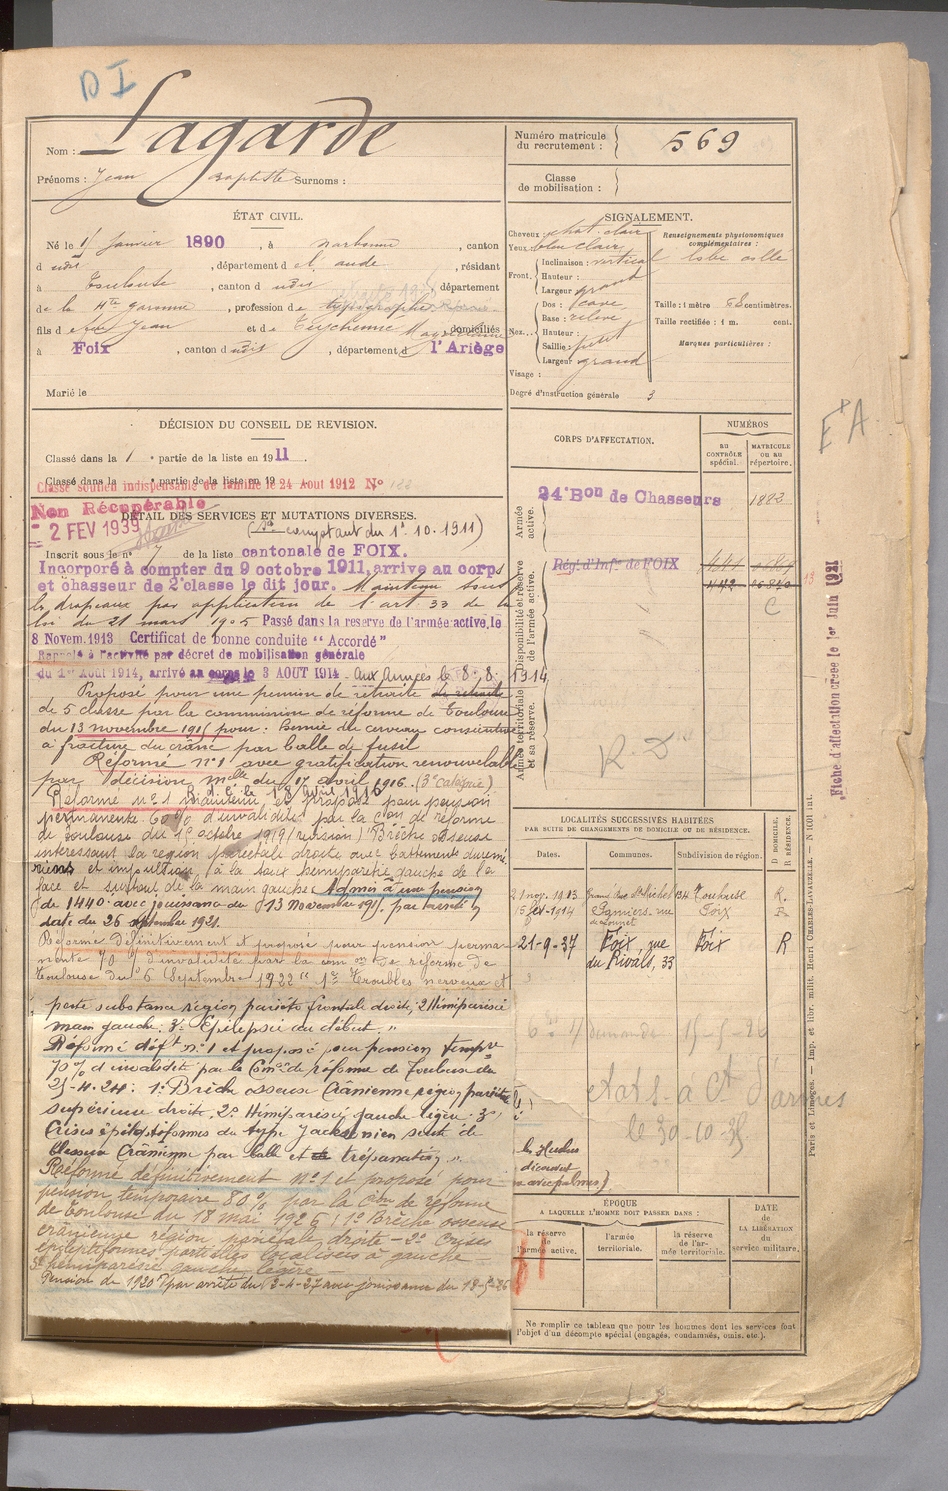 D I
Nom : Lagarde
Prénoms : Jean Baptiste Surnoms :
Numéro matricule
du recrutement : 569
Classe
de mobilisation :
ÉTAT CIVIL.
Né le 1er Janvier 1890, à Narbonne, canton
d udit, département d e l'aude, résidant
à Toulouse, canton d udit, département
de la Hte garonne, profession de typographe
fils de feu Jean et de domiciliés
à Foix, canton dudit, département d l'Ariège
Marié le
SIGNALEMENT.
Cheveux : chat. clair
Yeux : bleu clair
Front. Inclinaison : vertical
Hauteur : grand
Largeur : grand
Nez. Dos : cave
Base : relevé
Hauteur :
Saillie : petit
Largeur : grand
Visage :
Renseignements physionomiques
complémentaires :
Taille : 1 mètre 68 centimètres.
Taille rectifiée : 1 m. cent.
Marques particulières :
Degré d'instruction générale 3
DÉCISION DU CONSEIL DE REVISION.
Classé dans la 1e partie de la liste en 1911.
Classé dans la e partie de la liste en 19
Classé soutien indispensable de famille le 24 Aout 1912 No
Non Récupérable
2 FEV 1939
DÉTAIL DES SERVICES ET MUTATIONS DIVERSES.
(Se comptant du 1er 10.1911)
Inscrit sous le no 7 de la liste cantonale de FOIX.
Incorporé à compter du 9 octobre 1911, arrive au corps
et chasseur de 2e classe le dit jour. Maintenu sous
les drapeaux par application de l'art 33 de la
loi du 21 mars 1905 Passé dans la reserve de l'armée active, le
8 Novem. 1913 Certificat de bonne conduite "Accordé"
Rappelé à l'activité par décret de mobilisation générale
du 1er Août 1914, arrivé au corps le 3 AOUT 1914. aux Armées le 8.8.1914
Proposé pour une pension de retraite de retraite
de 5 classe par la commission de réforme de Toulouse
du 13 novembre 1915 pour : hernie du cerveau consécutive
à fracture du crâne par balle de fusil
Réformé no 1 avec gratification renouvelable
par décision mlle du 17 avril 1916 (3e catégorie)
Réformé no 1 maintenu et proposé pour pension
permanente 60 % d'invalidité par la Con de réforme
de Toulouse du 1er octobre 1919 (révision) Brèche osseuse
intéressant la région pariétale droite avec battements duremé-
riens et impulsion à la toux hémiparésie gauche de la
face et surtout de la main gauche. Admis à une pension
de 1440 avec jouissance du 13 Novembre 191. par arrêté
date du 26 septembre 1921.
Réformé définitivement et proposé pour pension perma-
nente 70 % d'invalidité par la com on de réforme de
Toulouse du 6 Septembre 1922 " 1o Troubles nerveux et
perte substance région pariéto frontale droite, 2o Hémiparésie
main gauche. 3o Epilepsie au début. "
Réformé déft no 1 et proposé pour pension tempre
70 % d'invalidité par la Conon de réforme de Toulouse du
25-4-24 : 1o Brèche osseuse Crânienne région pariétale
supérieure droite, 2o Hémiparésie gauche légère. 3o
Crises épileptiformes du type Jacksonien suite de
blessure Crânienne par balle et trépanation. "
Réformé définitivement no 1 et proposé pour
pension temporaire 80 % par la Con de réforme
de Toulouse du 18 mai 1926 : 1o Brèche osseuse
crânienne région pariétale droite - 2o Crises
épileptiformes partielles localisées à gauche
3o hémiparésie gauche légère -
Pension de 1920 F par arrêté du 2-4-27 avec jouissance du 18-5-26
CORPS D'AFFECTATION.
NUMÉROS
AU CONTRÔLE spécial.
MATRICULE OU AU répertoire.
Armée active.
24e Bon de Chasseurs 1882
Disponibilité et réserve de l'armée active.
Régt d'Infie de FOIX
C
Armée territoriale et sa réserve.
R. D
LOCALITÉS SUCCESSIVES HABITÉES
PAR SUITE DE CHANGEMENTS DE DOMICILE OU DE RÉSIDENCE.
Dates. Communes. Subdivision de région. D DOMICILE. R RÉSIDENCE.
21 nov. 1913 Grande Rue St Michel 134 Toulouse R.
15 fév. 1914 Pamiers. rue Foix R
21-9-37 Foix, rue Foix R
du Rivals, 33
demande 15-5-26
le 30-10-35
avec palmes)
ÉPOQUE
A LAQUELLE L'HOMME DOIT PASSER DANS :
la réserve de l'armée active.
l'armée territoriale.
la réserve de l'armée territoriale.
DATE
de
LA LIBÉRATION
du
service militaire.
Ne remplir ce tableau que pour les hommes dont les services font
l'objet d'un décompte spécial (engagés, condamnés, omis, etc.).
Fiche d'affectation créée le 1er Juin 1921
Paris et Limoges. — Imp. et libr. milit. Henri CHARLES-LAVAUZELLE. — N 1001 int.